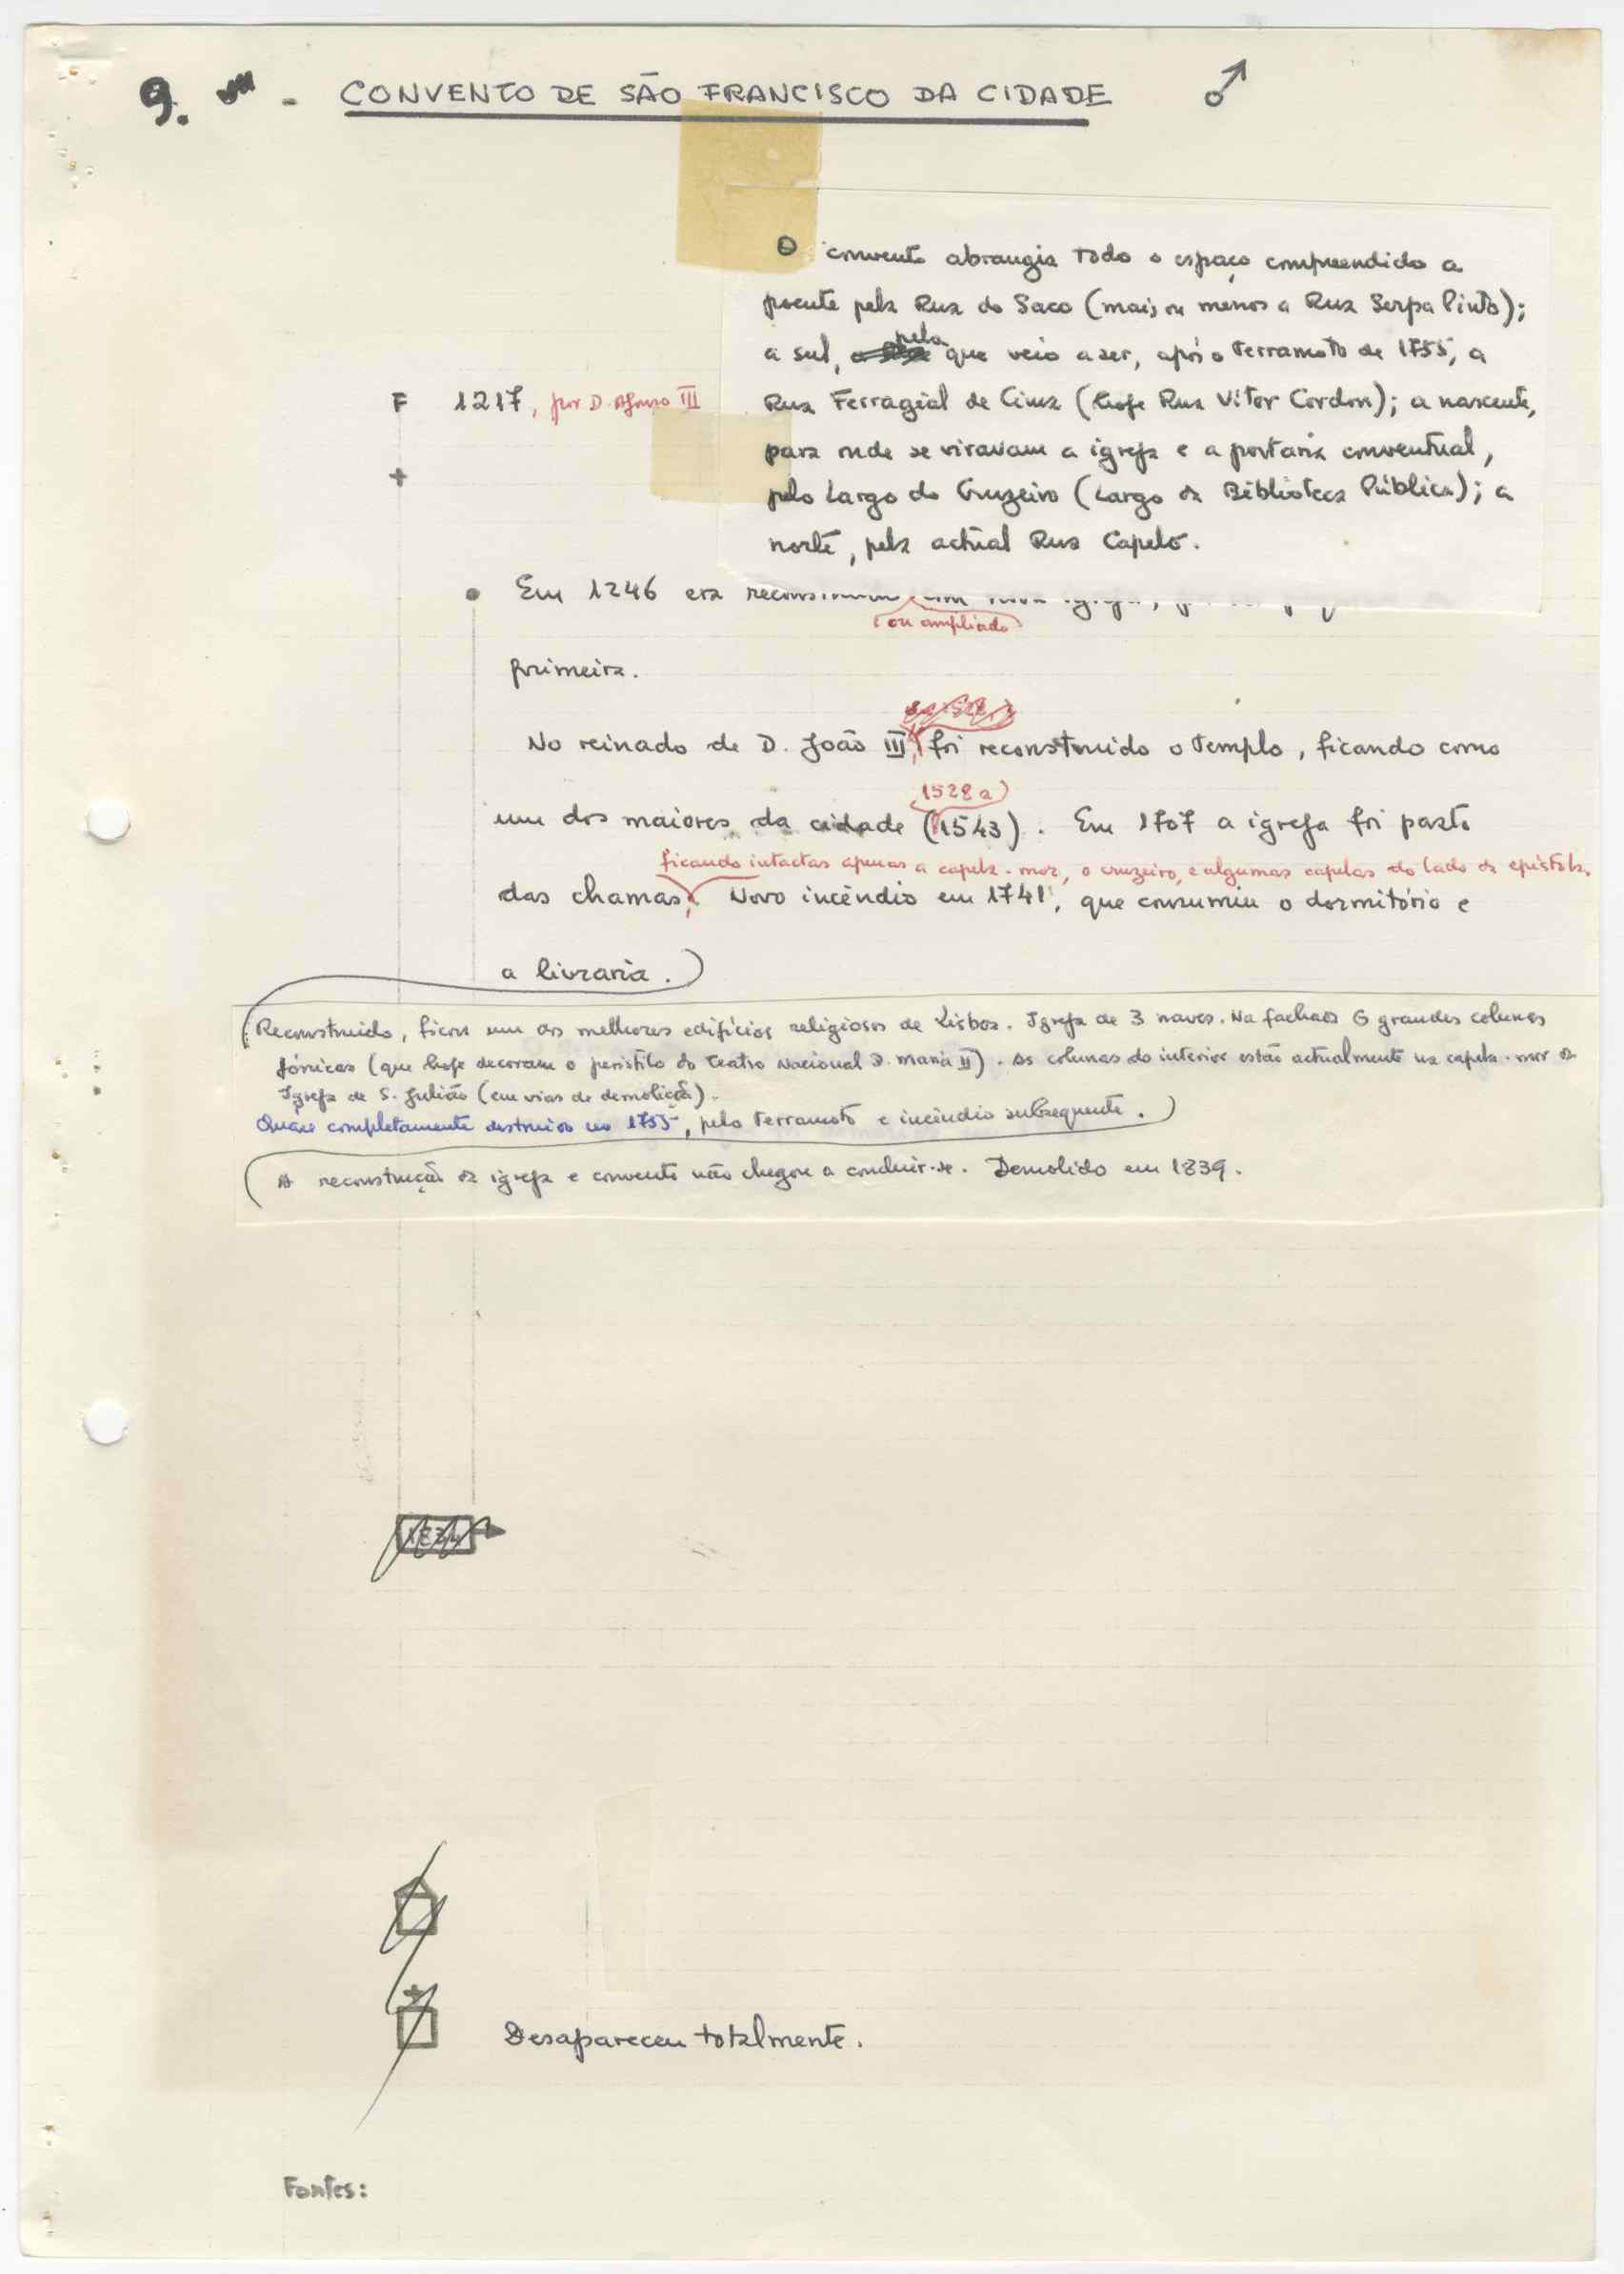 9. - CONVENTO DE SÃO FRANCISCO DA CIDADE ♂
O convento abrangia todo o espaço compreendido a
poente pela Rua do Saco (mais ou menos a Rua Serpa Pinto);
a sul, pelo que veio a ser, após o terramoto de 1755, a
Rua Ferragial de Cima (hoje Rua Vítor Cordon); a nascente,
para onde se viravam a igreja e a portaria conventual,
pelo Largo do Cruzeiro (Largo da Biblioteca Pública); a
norte, pela actual Rua Capelo.
F 1217, por D. Afonso III
+
• Em 1246 era
(ou ampliado)
primeira.
No reinado de D. João III, foi reconstruído o templo, ficando como
1528 a
um dos maiores da cidade (1543). Em 1707 a igreja foi pasto
ficando intactas apenas a capela-mor, o cruzeiro, e algumas capelas do lado da epístola.
das chamas, Novo incêndio em 1741, que consumiu o dormitório e
a livraria.)
(Reconstruído, ficou um dos melhores edifícios religiosos de Lisboa. Igreja de 3 naves. Na fachada 6 grandes colunas
jónicas (que hoje decoram o peristilo do Teatro Nacional D. Maria II). As colunas do interior estão actualmente na capela-mor da
Igreja de S. Julião (em vias de demolição).
Quase completamente destruído em 1755, pelo terramoto e incêndio subsequente.)
(A reconstrução da igreja e convento não chegou a concluir-se. Demolido em 1839.
Desapareceu totalmente.
Fontes: